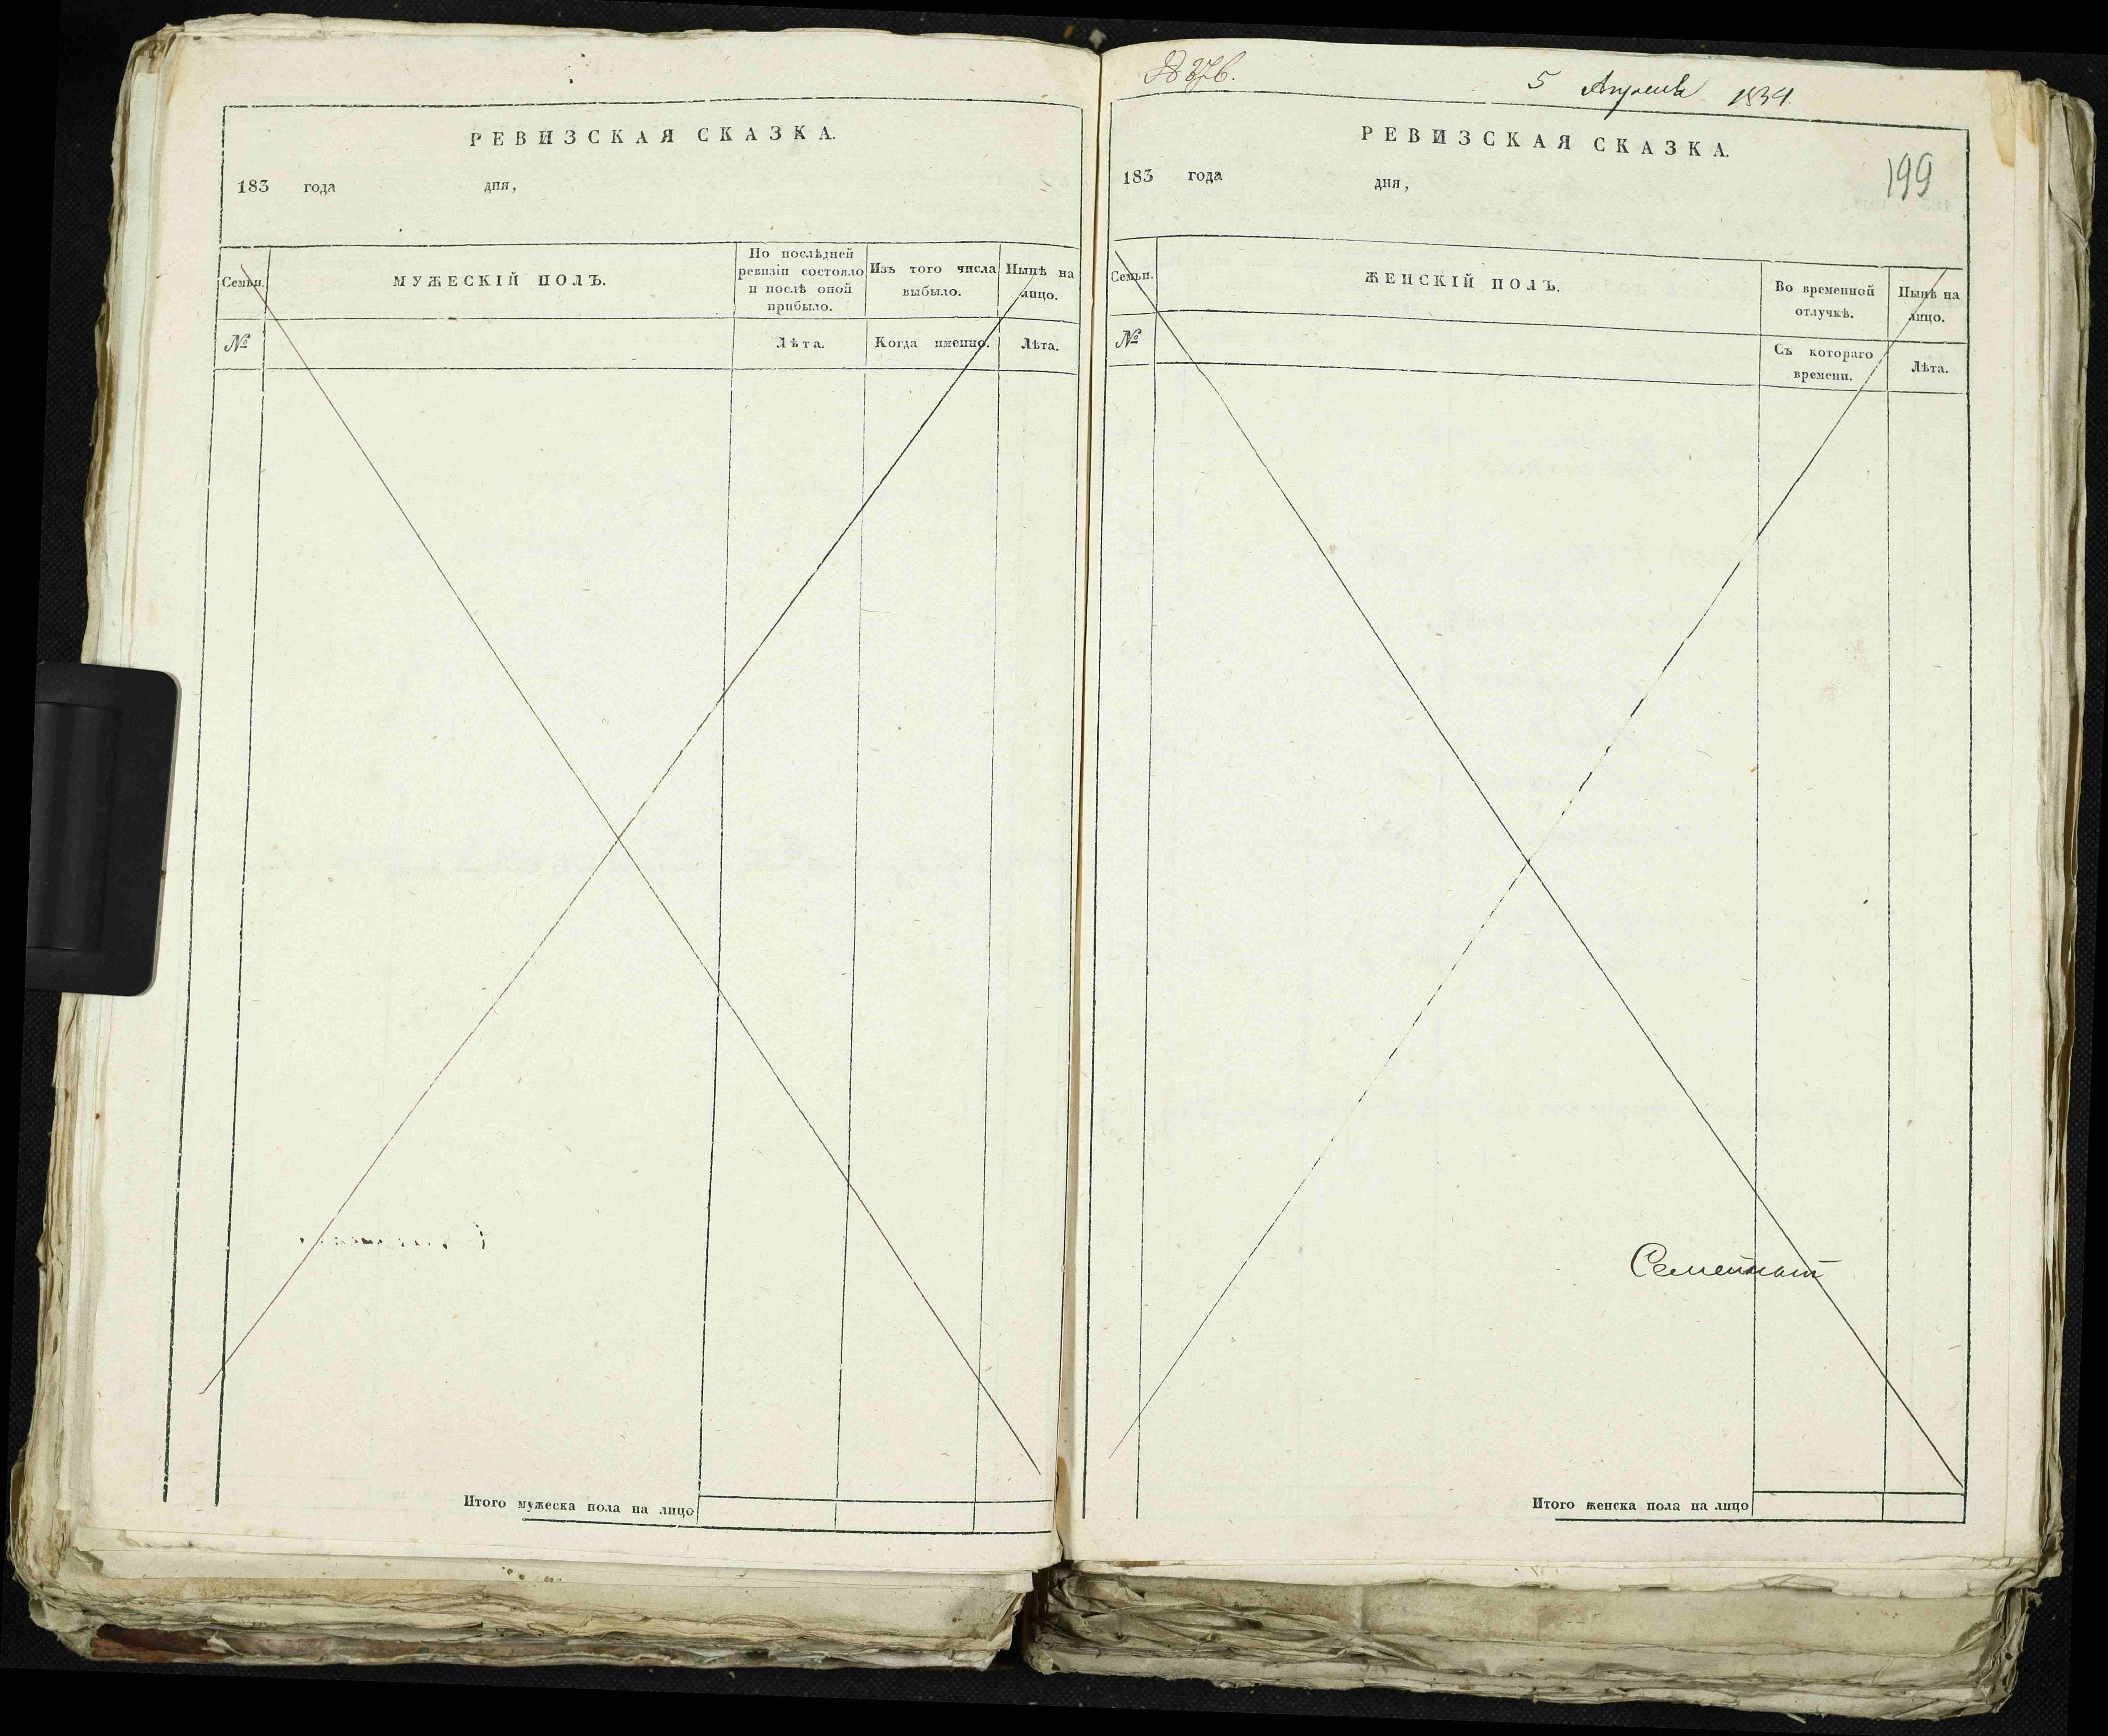 РЕВИЗСКАЯ СКАЗКА.
183 года дня,
Семьи.
МУЖЕСКІЙ ПОЛЪ.
По послѣдней ревизіи состояло и послѣ оной прибыло.
Изъ того числа выбыло.
Нынѣ на лицо.
№
Лѣта.
Когда именно.
Лѣта.
Итого мужеска пола на лицо
5 Апреля 1834.
РЕВИЗСКАЯ СКАЗКА.
199
183 года дня,
Семьи.
ЖЕНСКІЙ ПОЛЪ.
Во временной отлучкѣ.
Нынѣ на лицо.
№
Съ котораго времени.
Лѣта.
Итого женска пола на лицо